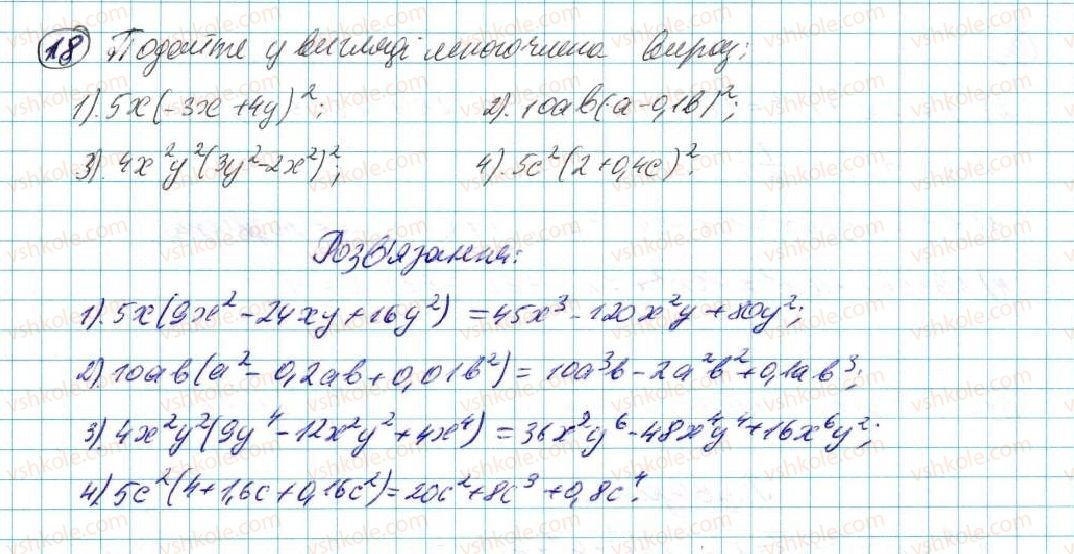 18 Подайте у вигляді многочлена вираз:
1). 5x(-3x+4y)²; 2). 10ab(a-0,1b)²;
3). 4x²y²(3y²-2x²)²; 4). 5c²(2+0,4c)².
Розв'язання:
1). 5x(9x²-24xy+16y²) =45x³-120x²y+80y²;
2) 10ab(a²-0,2ab+0,01b²)= 10a³b-2a²b²+0,1ab³;
3) 4x²y²(9y⁴-12x²y²+4x⁴)=36x²y⁶-48x⁴y⁴+16x⁶y²;
4) 5c²(4+1,6c+0,16c²)=20c²+8c³+0,8c⁴.
vshkole.com